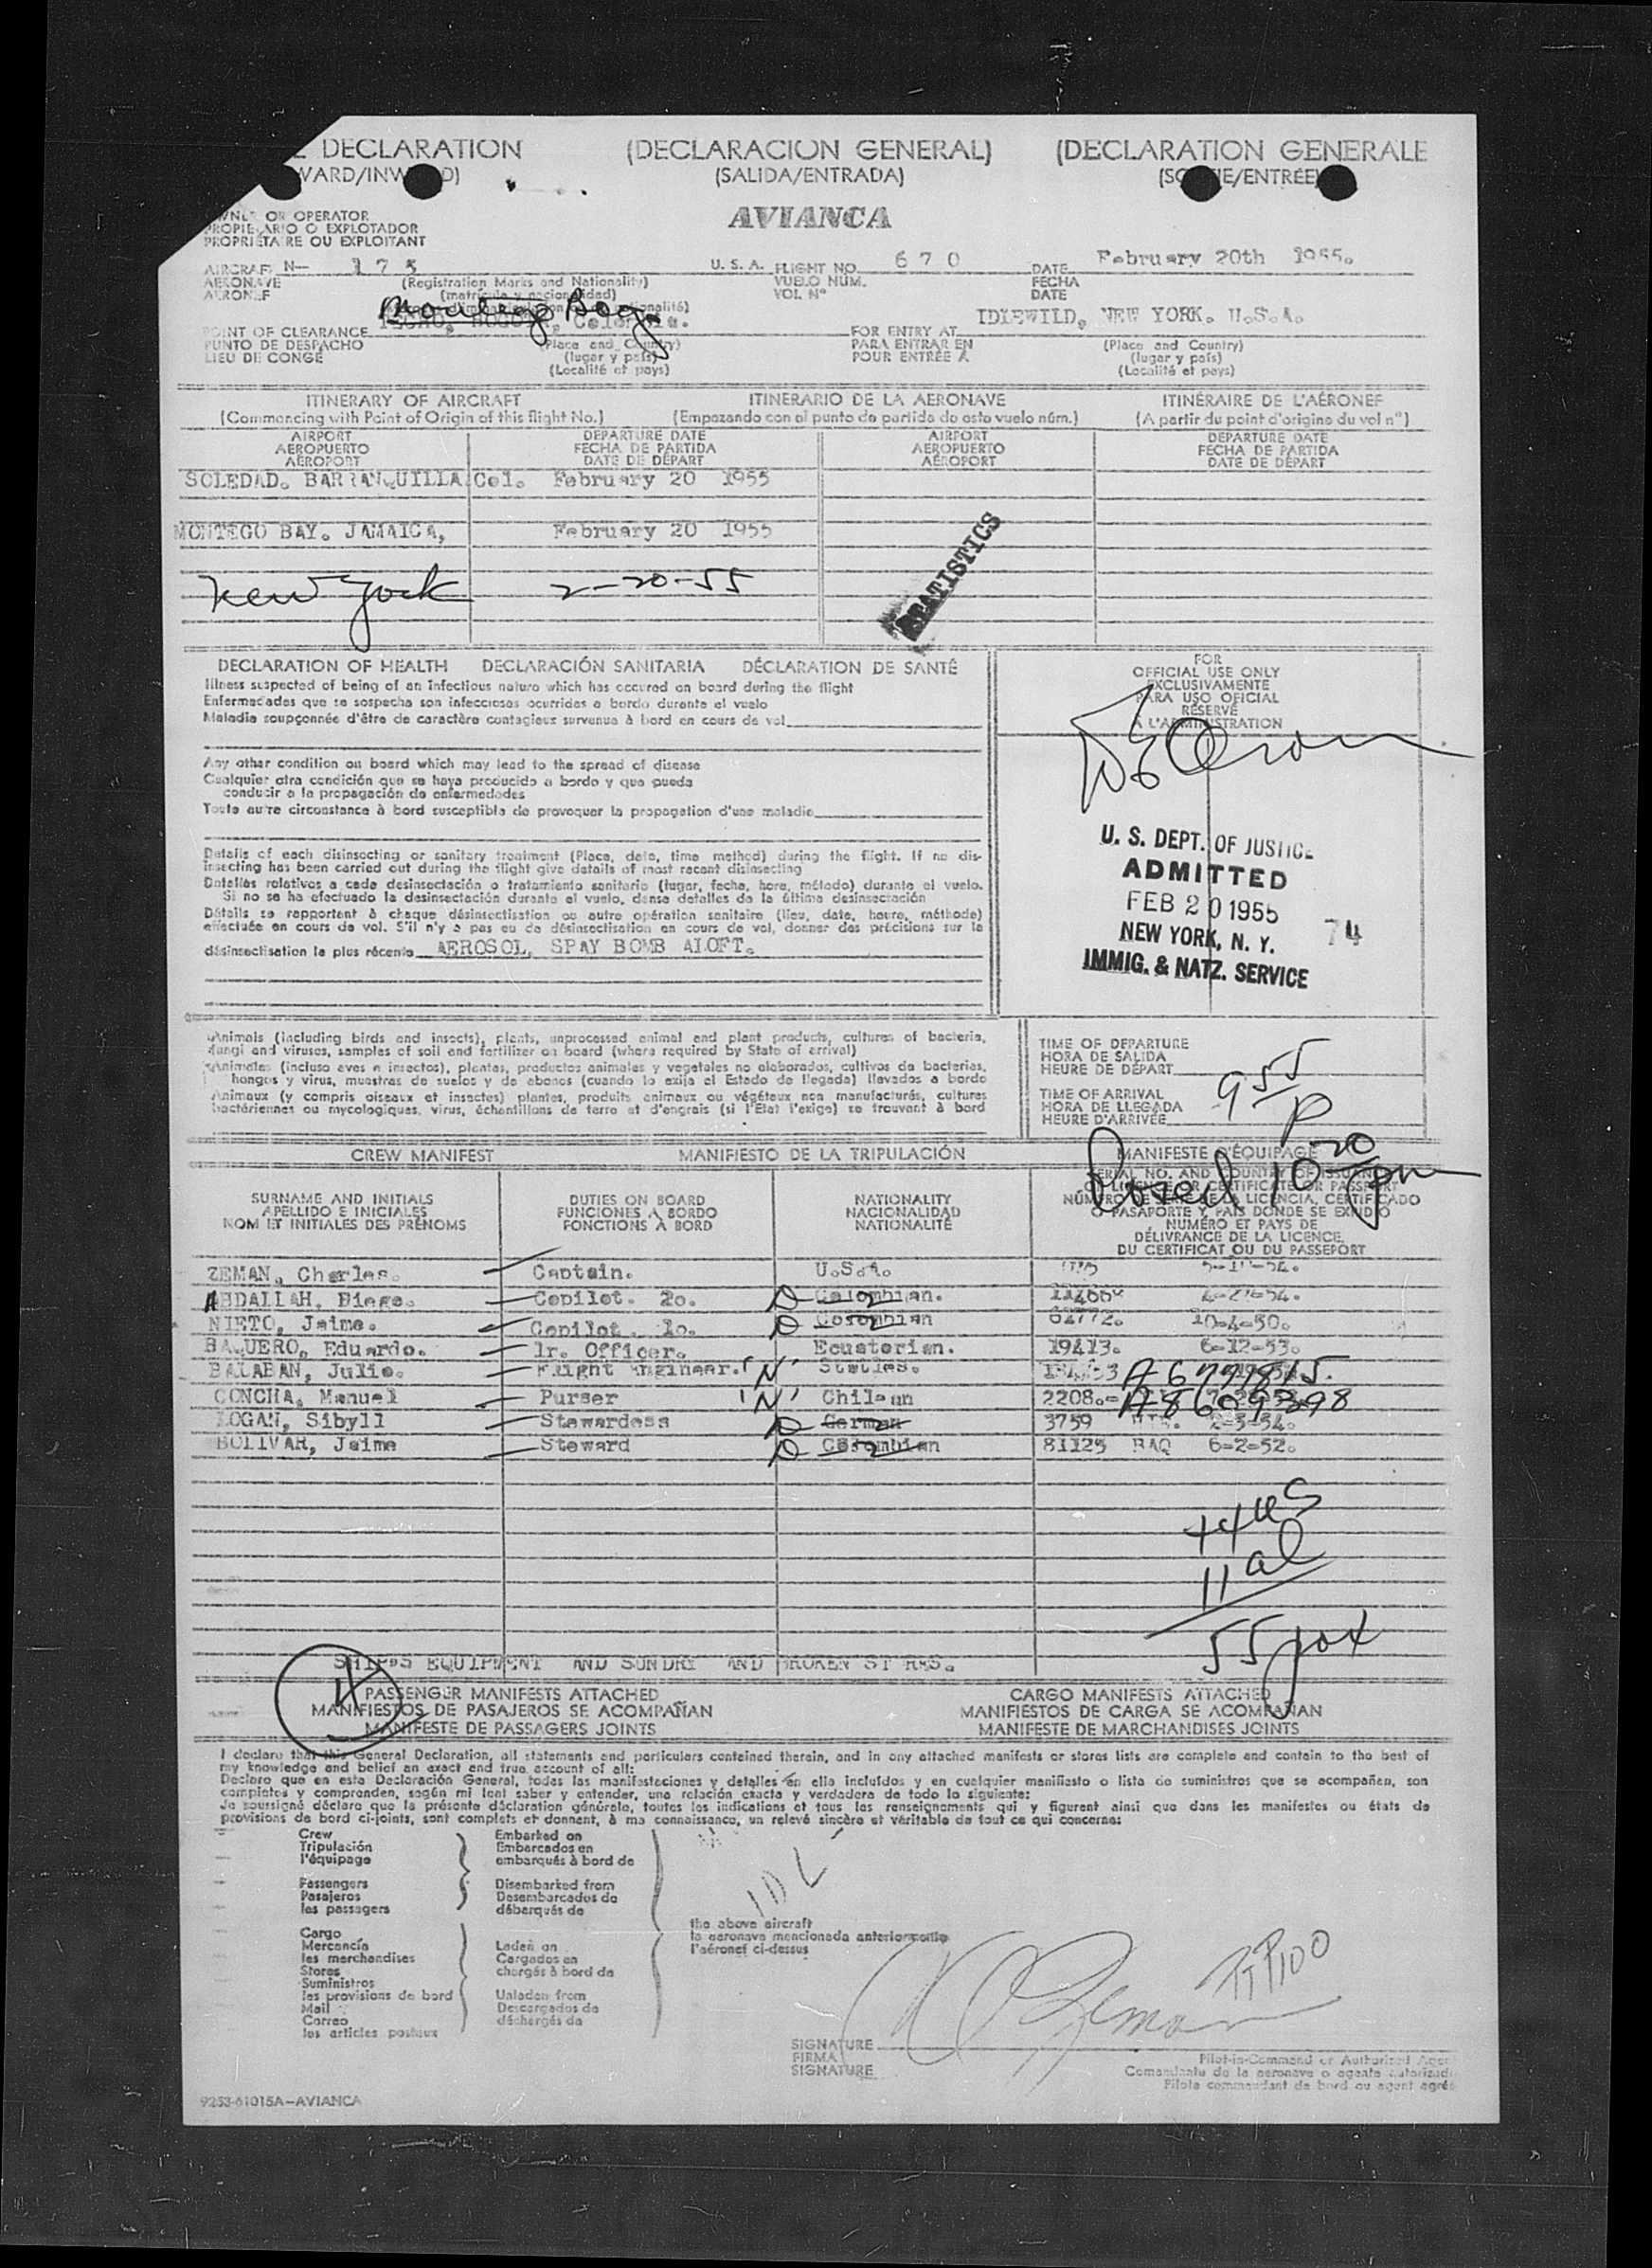 DECLARATION (DECLARACION GENERAL) (DECLARATION GENERALE
WARD/INW D) (SALIDA/ENTRADA) (SO IE/ENTREE)
OWNER OR OPERATOR
PROPIETARIO O EXPLOTADOR
PROPRIETAIRE OU EXPLOITANT
AVIANCA
AIRCRAFT N— 175 U. S. A. FLIGHT NO. 670 DATE February 20th 1955.
AERONAVE (Registration Marks and Nationality) VUELO NUM. FECHA
AERONEF (matrícula y nacionalidad) VOL Nº DATE
Montego Bay
POINT OF CLEARANCE Bogota, Colombia. FOR ENTRY AT IDLEWILD, NEW YORK. U.S.A.
PUNTO DE DESPACHO (Place and Country) PARA ENTRAR EN (Place and Country)
LIEU DE CONGÉ (lugar y país) POUR ENTRÉE A (lugar y país)
(Localité et pays) (Localité et pays)
ITINERARY OF AIRCRAFT ITINERARIO DE LA AERONAVE ITINÉRAIRE DE L'AÉRONEF
(Commencing with Point of Origin of this flight No.) (Empezando con el punto de partida de este vuelo núm.) (A partir du point d'origine du vol nº)
AIRPORT DEPARTURE DATE AIRPORT DEPARTURE DATE
AEROPUERTO FECHA DE PARTIDA AEROPUERTO FECHA DE PARTIDA
AÉROPORT DATE DE DÉPART AÉROPORT DATE DE DÉPART
SOLEDAD. BARRANQUILLA Col. February 20 1955
MONTEGO BAY. JAMAICA, February 20 1955
New York 2-20-55
STATISTICS
DECLARATION OF HEALTH DECLARACIÓN SANITARIA DÉCLARATION DE SANTÉ
Illness suspected of being of an infectious nature which has occured on board during the flight
Enfermedades que se sospecha son infecciosas ocurridas a bordo durante el vuelo
Maladie soupçonnée d'être de caractère contagieux survenue à bord en cours de vol
Any other condition on board which may lead to the spread of disease
Cualquier otra condición que se haya producido a bordo y que pueda
conducir a la propagación de enfermedades
Toute autre circonstance à bord susceptible de provoquer la propagation d'une maladie
Details of each disinsecting or sanitary treatment (Place, date, time method) during the flight. If no dis-
insecting has been carried out during the flight give details of most recent disinsecting
Detalles relativos a cada desinsectación o tratamiento sanitario (lugar, fecha, hora, método) durante el vuelo.
Si no se ha efectuado la desinsectación durante el vuelo, dense detalles de la última desinsectación
Détails se rapportent à chaque désinsectisation ou autre opération sanitaire (lieu, date, heure, méthode)
effectuée en cours de vol. S'il n'y a pas eu de désinsectisation en cours de vol, donner des précisions sur la
désinsectisation la plus récente AEROSOL, SPAY BOMB ALOFT.
FOR
OFFICIAL USE ONLY
EXCLUSIVAMENTE
PARA USO OFICIAL
RESERVÉ
A L'ADMINISTRATION
U. S. DEPT. OF JUSTICE
ADMITTED
FEB 20 1955 74
NEW YORK, N. Y.
IMMIG. & NATZ. SERVICE
Animals (including birds and insects), plants, unprocessed animal and plant products, cultures of bacteria,
fungi and viruses, samples of soil and fertilizer on board (where required by State of arrival)
Animales (incluso aves e insectos), plantas, productos animales y vegetales no elaborados, cultivos de bacterias,
hongos y virus, muestras de suelos y de abonos (cuando lo exija el Estado de llegada) llevados a bordo
Animaux (y compris oiseaux et insectes) plantes, produits animaux ou végétaux non manufacturés, cultures
bactériennes ou mycologiques, virus, échantillons de terre et d'engrais (si l'État l'exige) se trouvant à bord
TIME OF DEPARTURE
HORA DE SALIDA
HEURE DE DÉPART
TIME OF ARRIVAL 9 55 P
HORA DE LLEGADA
HEURE D'ARRIVÉE
CREW MANIFEST MANIFIESTO DE LA TRIPULACIÓN MANIFESTE D'ÉQUIPAGE
10 20 pm
SURNAME AND INITIALS DUTIES ON BOARD NATIONALITY SERIAL NO. AND COUNTRY OF ISSUANCE
APELLIDO E INICIALES FUNCIONES A BORDO NACIONALIDAD OF LICENCE OR CERTIFICATE OR PASSPORT
NOM ET INITIALES DES PRÉNOMS FONCTIONS À BORD NATIONALITÉ NÚMERO DE SERIE DE LA LICENCIA, CERTIFICADO
O PASAPORTE Y PAIS DONDE SE EXPIDIÓ
NUMÉRO ET PAYS DE
DÉLIVRANCE DE LA LICENCE,
DU CERTIFICAT OU DU PASSEPORT
ZEMAN, Charles. Captain. U.S.A.
ABDALLAH, Diego. Copilot. 2o. D Colombian.
NIETO, Jaime. Copilot. 1o. D Colombian 62772. 10-4-50.
BAQUERO, Eduardo. Ir. Officer. Ecuatorian. 19413. 6-12-53.
BALABAN, Julio. Flight Engineer. 'N'
CONCHA, Manuel Purser 'N' Chilean 2208.- A8609398
LOGAN, Sibyll Stewardess D German 3759 2-3-54.
BOLIVAR, Jaime Steward D Colombian 81125 BAQ 6-2-52.
44 US
11 al
55 pax
SHIPDS EQUIPMENT AND SUNDRY AND BROKEN ST RES.
4 PASSENGER MANIFESTS ATTACHED CARGO MANIFESTS ATTACHED
MANIFIESTOS DE PASAJEROS SE ACOMPAÑAN MANIFIESTOS DE CARGA SE ACOMPAÑAN
MANIFESTE DE PASSAGERS JOINTS MANIFESTE DE MARCHANDISES JOINTS
I declare that this General Declaration, all statements and particulars contained therein, and in any attached manifests or stores lists are complete and contain to the best of
my knowledge and belief an exact and true account of all:
Declaro que en esta Declaración General, todas las manifestaciones y detalles en ella incluídos y en cualquier manifiesto o lista de suministros que se acompañen, son
completos y comprenden, según mi leal saber y entender, una relación exacta y verdadera de todo lo siguiente:
Je soussigné déclare que la présente déclaration générale, toutes les indications et tous les renseignements qui y figurent ainsi que dans les manifestes ou états de
provisions de bord ci-joints, sont complets et donnent, à ma connaissance, un relevé sincère et véritable de tout ce qui concerne:
Crew Embarked on
Tripulación Embarcados en
l'équipage embarqués à bord de
Passengers Disembarked from
Pasajeros Desembarcados de
les passagers débarqués de
Cargo the above aircraft
Mercancía Laden on la aeronave mencionada anteriormente
les marchandises Cargados en l'aéronef ci-dessus
Stores chargés à bord de
Suministros
les provisions de bord Unladen from
Mail Descargados de
Correo déchargés de
les articles postaux
IDL
SIGNATURE Zeman
FIRMA Pilot-in-Command or Authorized Agen
SIGNATURE Comandante de la aeronave o agente autorizado
Pilote commandant de bord ou agent agréé
9253-61015A—AVIANCA